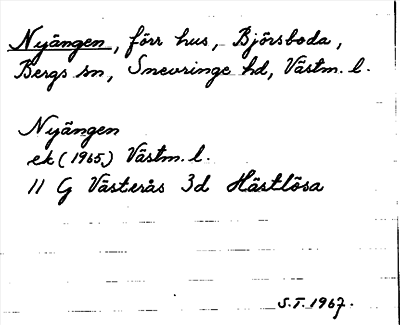 Nyängen, förr hus, Björsboda,
Bergs sn, Snevringe hd, Västm. l.
Nyängen
ek (1965) Västm. l.
11 G Västerås 3d Hästlösa
S.T. 1967.